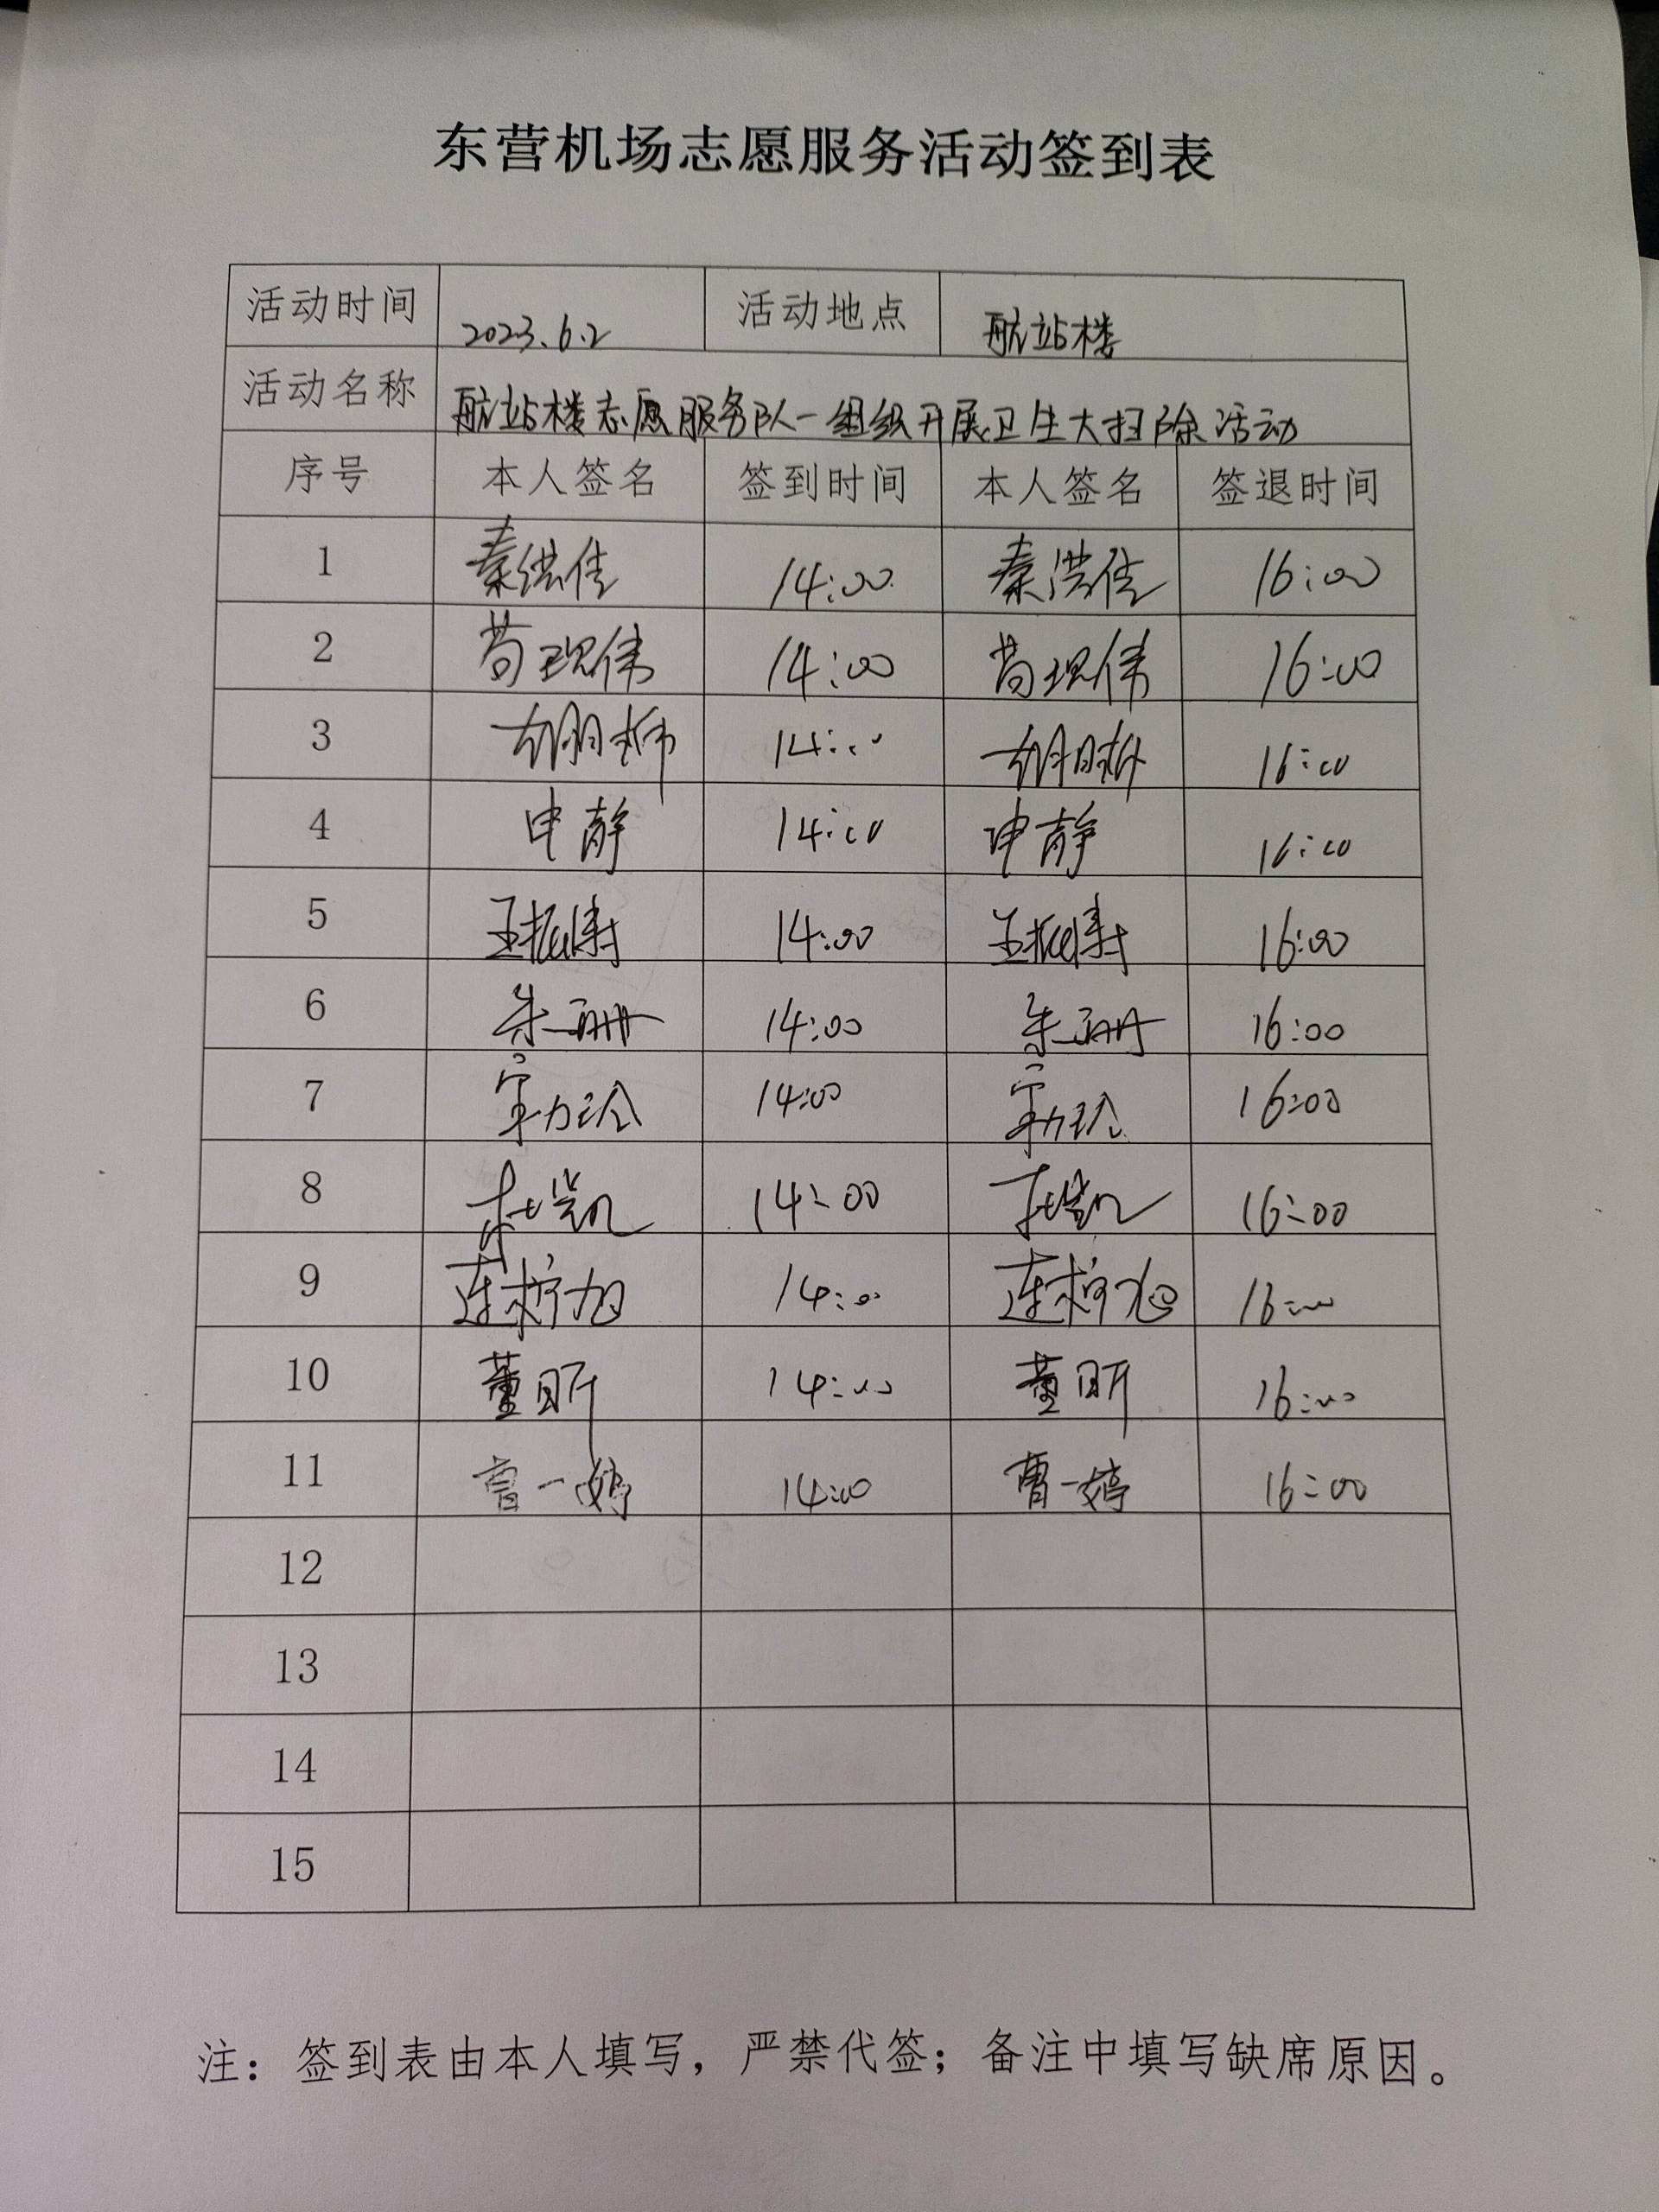 东营机场志愿服务活动签到表
活动时间 2023.6.2 活动地点 航站楼
活动名称 航站楼志愿服务队一组组织开展卫生大扫除活动
序号 本人签名 签到时间 本人签名 签退时间
1 秦洪佳 14:00 秦洪佳 16:00
2 苟现伟 14:00 苟现伟 16:00
3 14:00 16:00
4 申静 14:00 申静 16:00
5 王振涛 14:00 王振涛 16:00
6 朱珊珊 14:00 朱珊珊 16:00
7 14:00 16:00
8 杜凯 14:00 杜凯 16:00
9 连 旭 14:00 连 旭 16:00
10 董昕 14:00 董昕 16:00
11 曹一婷 14:00 曹一婷 16:00
12
13
14
15
注：签到表由本人填写，严禁代签；备注中填写缺席原因。